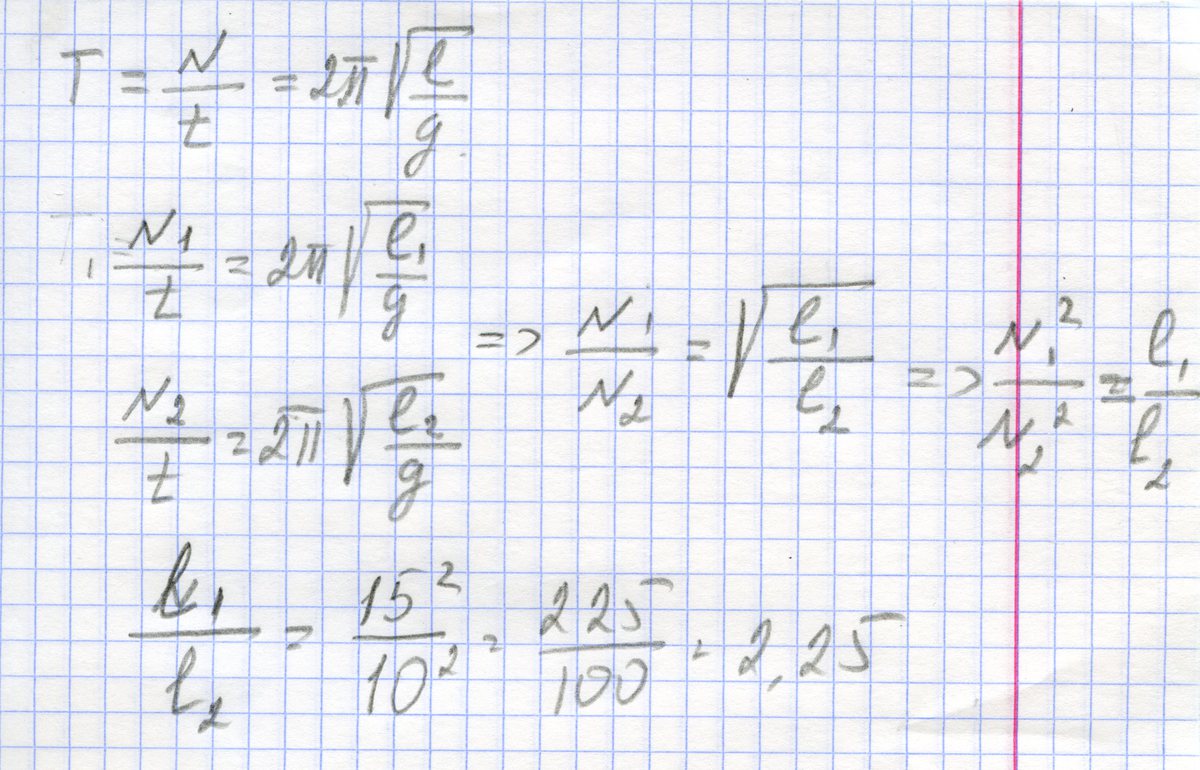 T = N/t = 2π√(l/g)
N₁/t = 2π√(l₁/g)
N₂/t = 2π√(l₂/g)
=> N₁/N₂ = √(l₁/l₂) => N₁²/N₂² = l₁/l₂
l₁/l₂ = 15²/10² = 225/100 = 2,25